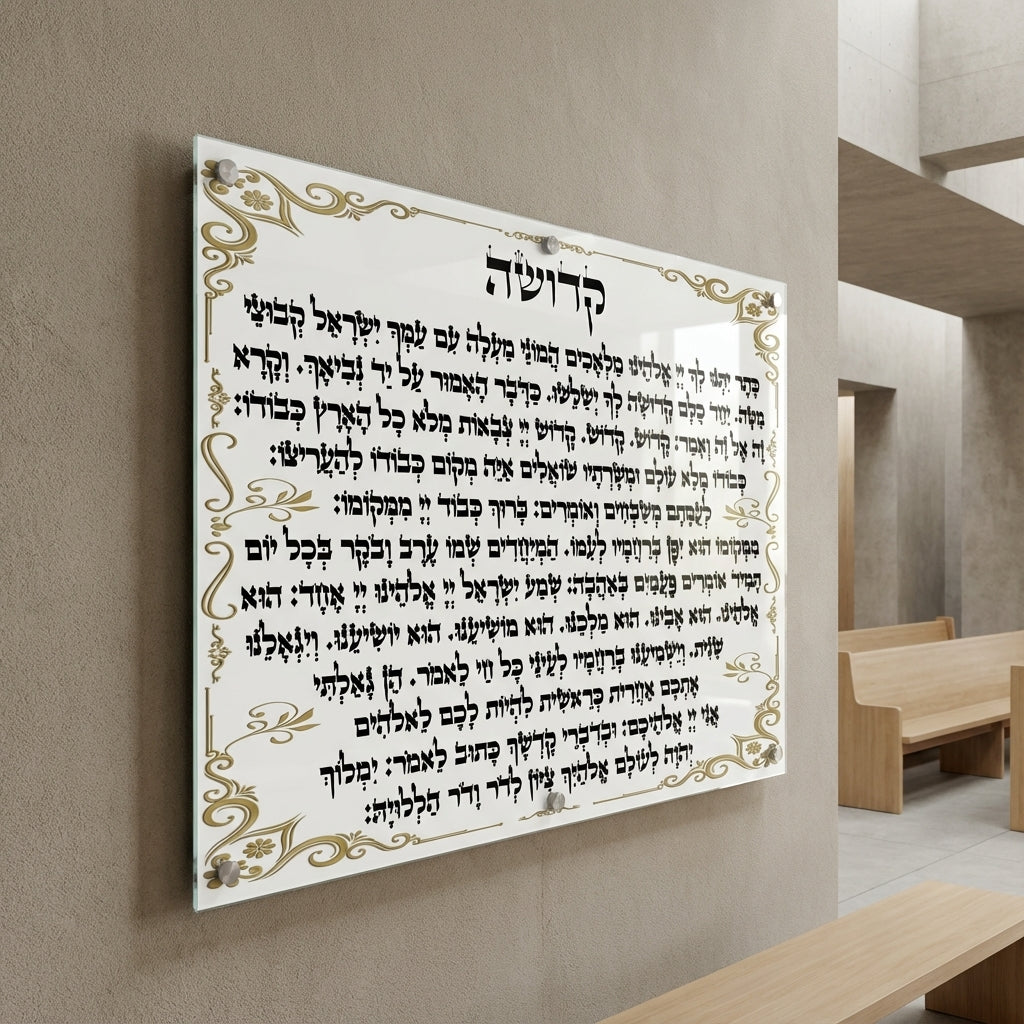 קדושה
כֶּתֶר יִתְּנוּ לְךָ יְיָ אֱלֹהֵינוּ מַלְאָכִים הֲמוֹנֵי מַעְלָה עִם עַמְּךָ יִשְׂרָאֵל קְבוּצֵי
מַטָּה. יַחַד כֻּלָּם קְדוּשָּׁה לְךָ יְשַׁלֵּשׁוּ. כַּדָּבָר הָאָמוּר עַל יַד נְבִיאָךְ. וְקָרָא
זֶה אֶל זֶה וְאָמַר: קָדוֹשׁ. קָדוֹשׁ. קָדוֹשׁ יְיָ צְבָאוֹת מְלֹא כָל הָאָרֶץ כְּבוֹדוֹ:
כְּבוֹדוֹ מָלֵא עוֹלָם וּמְשָׁרְתָיו שׁוֹאֲלִים אַיֵּה מְקוֹם כְּבוֹדוֹ לְהַעֲרִיצוֹ:
לְעֻמָּתָם מְשַׁבְּחִים וְאוֹמְרִים: בָּרוּךְ כְּבוֹד יְיָ מִמְּקוֹמוֹ:
מִמְּקוֹמוֹ הוּא יִפֶן בְּרַחֲמָיו לְעַמּוֹ. הַמְיַחֲדִים שְׁמוֹ עֶרֶב וָבֹקֶר בְּכָל יוֹם
תָּמִיד אוֹמְרִים פַּעֲמַיִם בְּאַהֲבָה: שְׁמַע יִשְׂרָאֵל יְיָ אֱלֹהֵינוּ יְיָ אֶחָד: הוּא
אֱלֹהֵינוּ. הוּא אָבִינוּ. הוּא מַלְכֵּנוּ. הוּא מוֹשִׁיעֵנוּ. הוּא יוֹשִׁיעֵנוּ. וְיִגְאָלֵנוּ
שֵׁנִית. וְיַשְׁמִיעֵנוּ בְּרַחֲמָיו לְעֵינֵי כָּל חַי לֵאמֹר. הֵן גָּאַלְתִּי
אֶתְכֶם אַחֲרִית כְּרֵאשִׁית לִהְיוֹת לָכֶם לֵאלֹהִים
אֲנִי יְיָ אֱלֹהֵיכֶם: וּבְדִבְרֵי קָדְשְׁךָ כָּתוּב לֵאמֹר: יִמְלֹוךְ
יְהֹוָה לְעוֹלָם אֱלֹהַיִךְ צִיּוֹן לְדֹר וָדֹר הַלְלוּיָהּ: